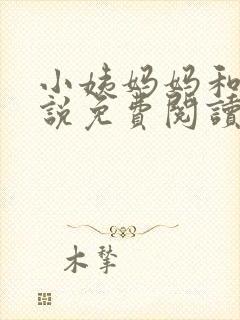 小姨妈妈和
說免費閱讀
木犂